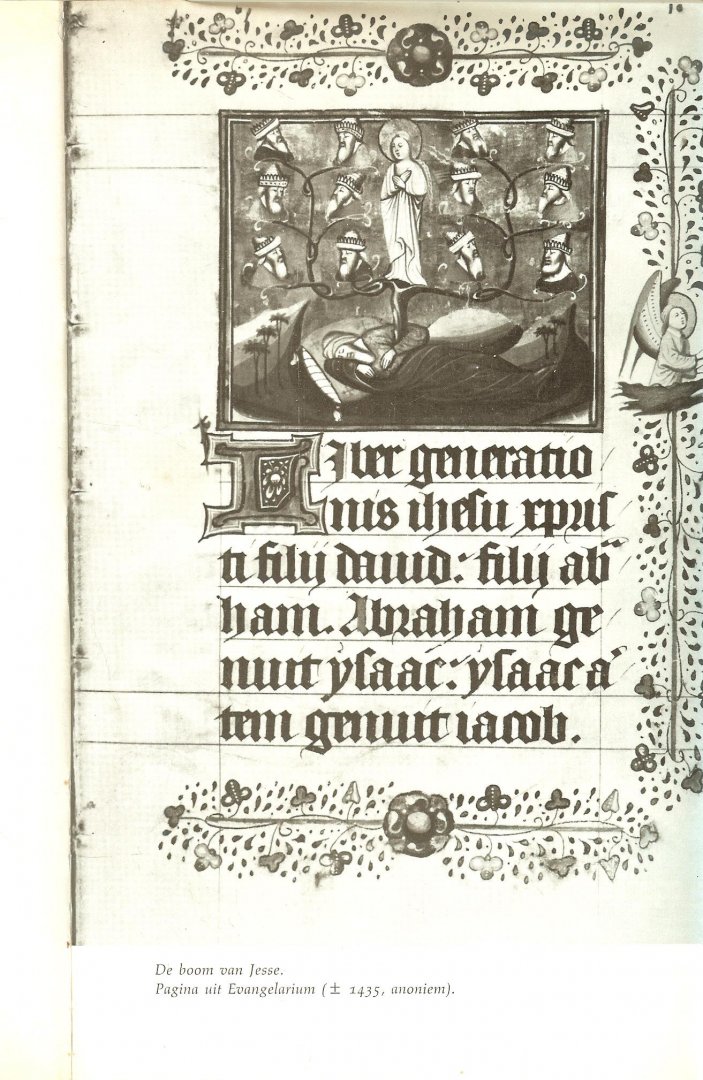 Liber generatio
nis ihesu xpris
ti filij dauid: filij ab
ham. Abraham ge
nuit ysaac: ysaac a
tem genuit iacob.
De boom van Jesse.
Pagina uit Evangelarium (± 1435, anoniem).